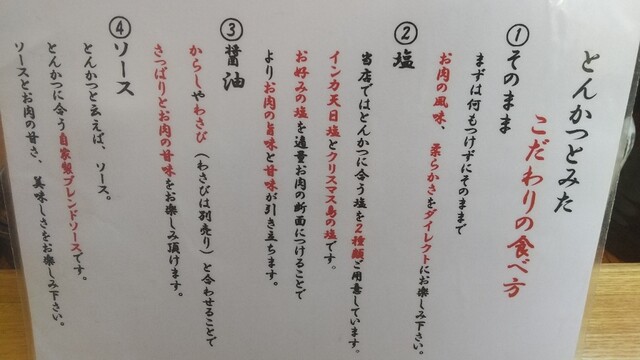 とんかつとみた
こだわりの食べ方
①そのまま
まずは何もつけずにそのままで
お肉の風味、柔らかさをダイレクトにお楽しみ下さい。
②塩
当店ではとんかつに合う塩を2種類ご用意しています。
インカ天日塩とクリスマス島の塩です。
お好みの塩を適量お肉の断面につけることで
よりお肉の旨味と甘味が引き立ちます。
③醤油
からしやわさび（わさびは別売り）と合わせることで
さっぱりとお肉の甘味をお楽しみ頂けます。
④ソース
とんかつと云えば、ソース。
とんかつに合う自家製ブレンドソースです。
ソースとお肉の甘さ、美味しさをお楽しみ下さい。